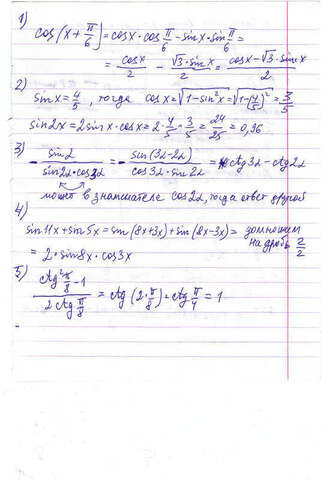 1)
cos(x + π/6) = cosx · cos π/6 - sinx · sin π/6 =
= cosx/2 - √3·sinx/2 = cosx - √3·sinx/2
2)
sinx = 4/5, тогда cosx = √1-sin²x = √1-(4/5)² = 3/5
sin2x = 2sinx · cosx = 2 · 4/5 · 3/5 = 24/25 = 0,96
3)
- sinα/sin2α·cos3α = - sin(3α-2α)/cos3α·sin2α = ctg3α - ctg2α
может в знаменателе cos2α, тогда ответ другой
4)
sin11x + sin5x = sin(8x+3x) + sin(8x-3x) = домножим на дробь 2/2
= 2·sin8x·cos3x
5)
ctg²π/8 - 1/2ctgπ/8 = ctg(2·π/8) = ctg π/4 = 1